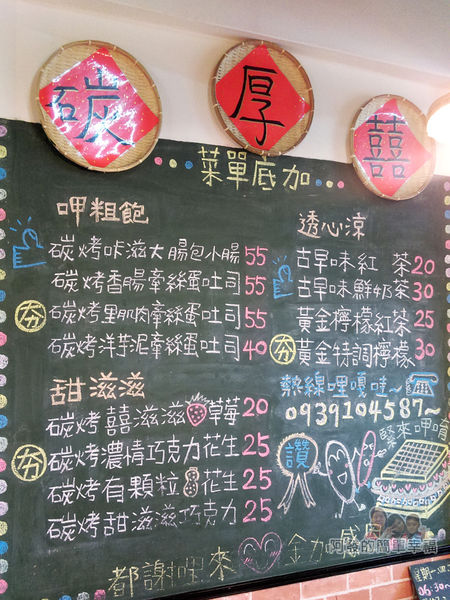 碳 厚 囍
菜單底加
呷粗飽
碳烤咔滋大腸包小腸55
碳烤香腸牽絲蛋吐司55
夯 碳烤里肌肉牽絲蛋吐司55
碳烤洋芋泥牽絲蛋吐司40
甜滋滋
碳烤囍滋滋草莓20
夯 碳烤濃情巧克力花生25
碳烤有顆粒花生25
碳烤甜滋滋巧克力25
透心涼
古早味紅茶20
古早味鮮奶茶30
黃金檸檬紅茶25
夯 黃金特調檸檬30
熱線哩嘎哇~
0939104587~
緊來呷
讚
都謝哩來 金力感
阿
的簡單幸福
星期一
06:30~